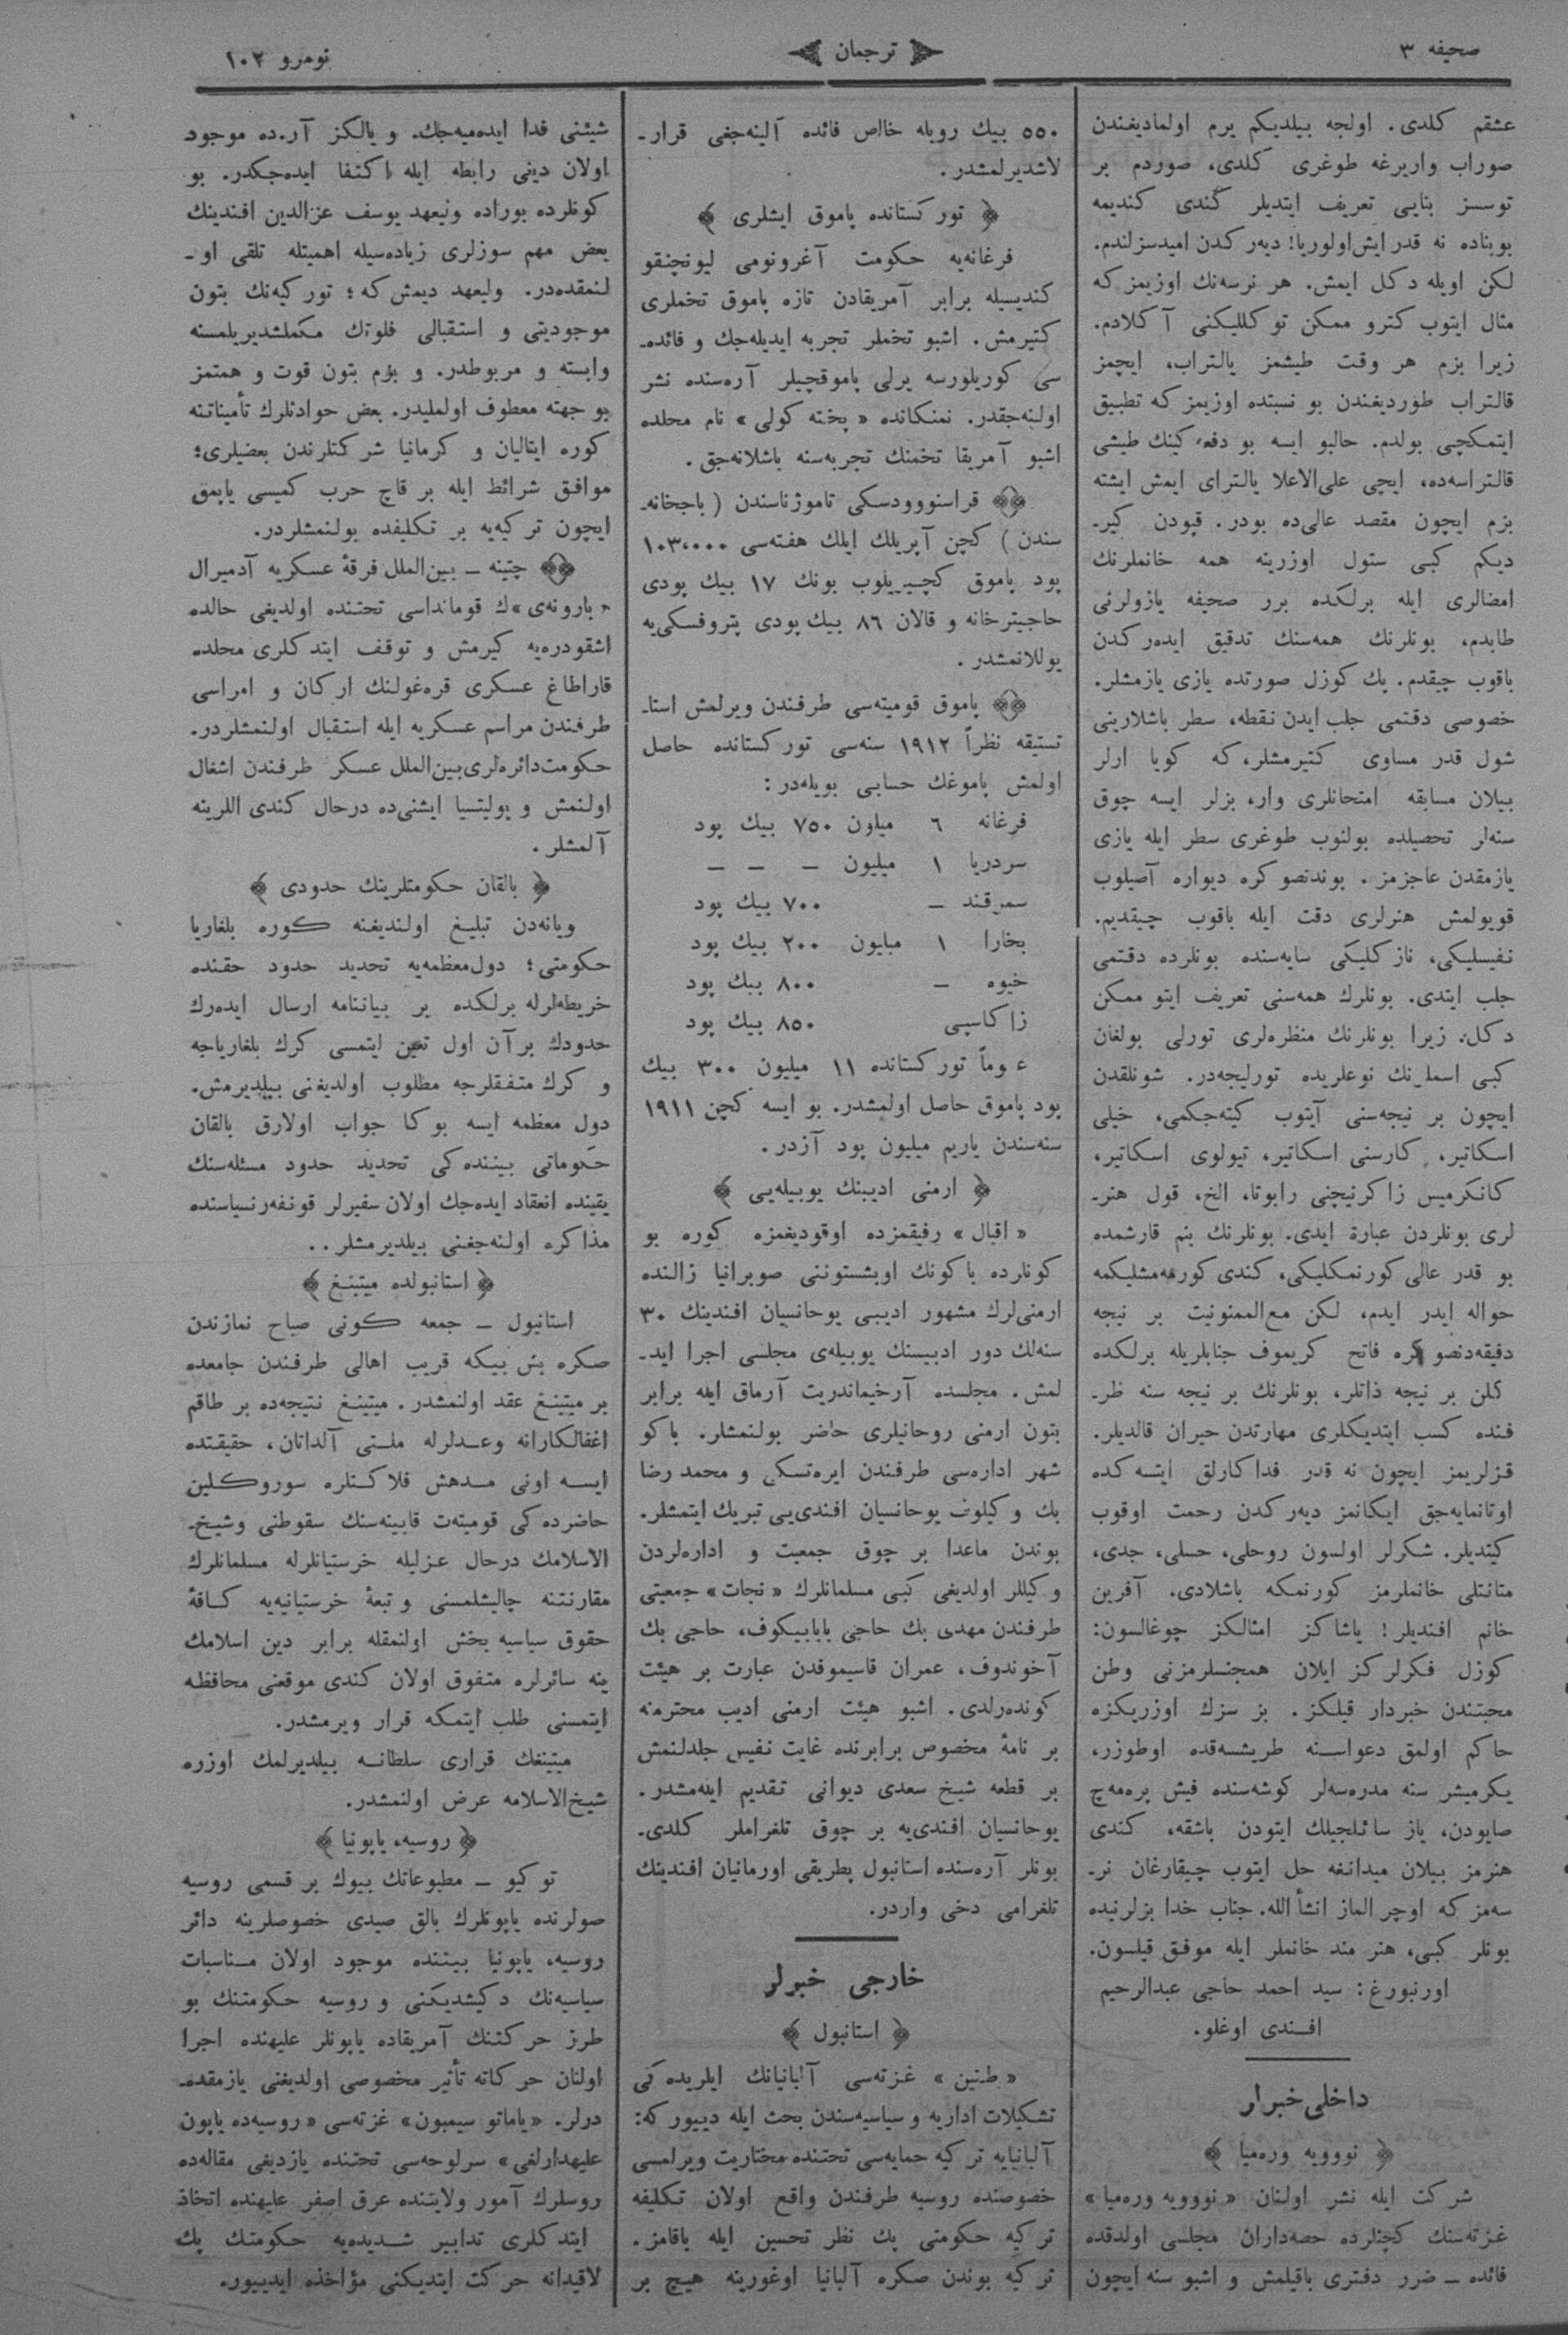 صحیفه ۳
ترجمان
نومرو ۱۰۲
عشقم كلدی. اولجه بیلدیكم یرم اولمادیغندن
صوراب واریرغه طوغری كلدی، صوردم بر
توسسز بنایی تعریف ایتدیلر كندی كندیمه
بوبناده نه قدر ایش اولوریا! دیه‌ركدن امیدسزلندم.
لكن اویله دكل ایمش. هر نرسه‌نك اوزیمزكه
مثال ایتوب كترو ممكن توكللیكنی آكلادم.
زیرا بزم هر وقت طیشمز یالتراب، ایچمز
قالتراب طوردیغندن بو نسبتده اوزیمزكه تطبیق
ایتمكچی بولدم. حالبو ایسه بو دفعه‌كینك طیشی
قالتراسه‌ده، ایچی علی‌الاعلا یالترای ایمش ایشته
بزم ایچون مقصد عالی‌ده بودر. قپودن كیر‌ـ
دیكم كبی ستول اوزرینه همه خانملرنك
امضالری ایله برلكده برر صحیفه یازولرنی
طابدم، بونلرنك همه‌سنك تدقیق ایده‌ركدن
باقوب چیقدم. پك كوزل صورتده یازی یازمشلر.
خصوصی دقتمی جلب ایدن نقطه، سطر باشلارینی
شول قدر مساوی كتیرمشلر، كه كویا ارلر
بیلان مسابقه امتحانلری وار، بزلر ایسه چوق
سنه‌لر تحصیلده بولنوب طوغری سطر ایله یازی
یازمقدن عاجزمز. بوندنصوكره دیواره آصیلوب
قویولمش هنرلری دقت ایله باقوب چیقدیم.
نفیسلیكی، نازكلیكی سایه‌سنده بونلرده دقتمی
جلب ایتدی. بونلرك همه‌سنی تعریف ایتو ممكن
دكل. زیرا بونلرنك منظره‌لری تورلی بولغان
كبی اسملرنك نوعلریده تورلیجه‌در. شونلقدن
ایچون بر نیجه‌سنی آیتوب كیته‌جكمی، خیلی
اسكاتیر، كارسنی اسكاتیر، تیولوی اسكاتیر،
كانكرمیس زاكرنیچنی رابوتا، الخ، قول هنر‌ـ
لری بونلردن عبارة ایدی. بونلرنك بنم قارشمده
بو قدر عالی كورنمكلیكی، كندی كورمه‌مشلیكمه
حواله ایدر ایدم، لكن مع‌الممنونیت بر نیجه
دقیقه‌دنصوكره فاتح كریموف جنابلریله برلكده
كلن بر نیجه ذاتلر، بونلرنك بر نیجه سنه ظر‌ـ
فنده كسب ایتدیكلری مهارتدن حیران قالدیلر.
قزلریمز ایچون نه قدر فداكارلق ایتسه‌كده
اوتانمایه‌جق ایكانمز دیه‌ركدن رحمت اوقوب
كیتدیلر. شكرلر اولسون روحلی، حسلی، جدی،
متانتلی خانملرمز كورنمكه باشلادی. آفرین
خانم افندیلر! یاشاكز امثالكز چوغالسون:
كوزل فكرلركز ایلان همجنسلرمزنی وطن
محبتندن خبردار قیلكز. بز سزك اوزریكزه
حاكم اولمق دعواسنه طریشسه‌قده اوطوزر،
یكرمیشر سنه مدرسه‌لر كوشه‌سنده قیش پره‌مه‌چ
صایودن، یاز سائلجیلك ایتودن باشقه، كندی
هنرمز بیلان میدانغه حل ایتوب چیقارغان نر‌ـ
سه‌مزكه اوچر الماز انشأالله. جناب خدا بزلرنیده
بونلر كبی، هنرمند خانملر ایله موفق قیلسون.
اورنبورغ: سید احمد حاجی عبدالرحیم
افندی اوغلو.
داخلی خبرلر
﴿ نوویه وره‌میا ﴾
شركت ایله نشر اولنان «نوویه وره‌میا»
غزته‌سنك كچنلرده حصه‌داران مجلسی اولدقده
قائده ـ ضرر دفتری باقیلمش و اشبو سنه ایچون
۵۵۰ بیك روبله خالص فائده آلینه‌جغی قرار‌ـ
لاشدیرلمشدر.
﴿ توركستانده پاموق ایشلری ﴾
فرغانه‌یه حكومت آغرونومی لیونچنقو
كندیسیله برابر آمریقادن تازه پاموق تخملری
كتیرمش. اشبو تخملر تجربه ایدیله‌جك و فائده‌ـ
سی كوریلورسه یرلی پاموقچیلر آره‌سنده نشر
اولنه‌جقدر. نمنكانده «پخته كولی» نام محلده
اشبو آمریقا تخمنك تجربه‌سنه باشلانه‌جق.
قراسنوودسكی تاموژناسندن (باجخانه‌ـ
سندن) كچن آپریلك ایلك هفته‌سی ۱۰۳،۰۰۰
پود پاموق كچیریلوب بونك ۱۷ بیك پودی
حاجیترخانه و قالان ۸۶ بیك پودی پتروفسكی‌یه
یوللانمشدر.
پاموق قومیته‌سی طرفندن ویرلمش استا‌ـ
تستیقه نظراً ۱۹۱۲ سنه‌سی توركستانده حاصل
اولمش پاموغك حسابی بویله‌در:
فرغانه ٦ میلون ۷۵۰ بیك پود
سردریا ۱ میلیون ـ ـ ـ
سمرقند ـ ۷۰۰ بیك پود
بخارا ۱ میلیون ۲۰۰ بیك پود
خیوه ـ ۸۰۰ بیك پود
زاكاسپی ۸۵۰ بیك پود
عوماً توركستانده ۱۱ میلیون ۳۰۰ بیك
پود پاموق حاصل اولمشدر. بو ایسه كچن ۱۹۱۱
سنه‌سندن یاریم میلیون پود آزدر.
﴿ ارمنی ادیبنك یوبیله‌یی ﴾
«اقبال» رفیقمزده اوقودیغمزه كوره بو
كونلرده باكونك اوبشستوننی صوبرانیا زالنده
ارمنی‌لرك مشهور ادیبی یوحانسیان افندینك ۳۰
سنه‌لك دور ادبیسنك یوبیله‌ی مجلسی اجرا اید‌ـ
لمش. مجلسده آرخیماندریت آرماق ایله برابر
بتون ارمنی روحانیلری حاضر بولنمشلر. باكو
شهر اداره‌سی طرفندن ایره‌تسكی و محمد رضا
بك وكیلوف یوحانسیان افندی‌یی تبریك ایتمشلر.
بوندن ماعدا بر چوق جمعیت و اداره‌لردن
وكیللر اولدیغی كبی مسلمانلرك «نجات» جمعیتی
طرفندن مهدی بك حاجی بابابیكوف، حاجی بك
آخوندوف، عمران قاسیموفدن عبارت بر هیئت
كونده‌رلدی. اشبو هیئت ارمنی ادیب محترمنه
بر نامهٔ مخصوص برابرنده غایت نفیس جلدلنمش
بر قطعه شیخ سعدی دیوانی تقدیم ایله‌مشدر.
یوحانسیان افندی‌یه بر چوق تلغراملر كلدی.
بونلر آره‌سنده استانبول پطریقی اورمانیان افندینك
تلغرامی دخی واردر.
خارجی خبرلر
﴿ استانبول ﴾
«طنین» غزته‌سی آلبانیانك ایلریده‌كی
تشكیلات اداریه و سیاسیه‌سندن بحث ایله دییور كه:
آلبانیایه تركیه حمایه‌سی تحتنده مختاریت ویرلمسی
خصوصنده روسیه طرفندن واقع اولان تكلیفه
تركیه حكومتی پك نظر تحسین ایله باقامز.
تركیه بوندن صكره آلبانیا اوغورینه هیچ بر
شیئنی فدا ایده‌میه‌جك. و یالكز آرده موجود
اولان دینی رابطه ایله اكتفا ایده‌جكدر. بو
كونلرده بوراده ولیعهد یوسف عزالدین افندینك
بعض مهم سوزلری زیاده‌سیله اهمیتله تلقی او‌ـ
لنمقده‌در. ولیعهد دیمش كه؛ توركیه‌نك بتون
موجودیتی و استقبالی فلوتك مكملشدیریلمسنه
وابسته و مربوطدر. و بزم بتون قوت و همتمز
بو جهته معطوف اولملیدر. بعض حوادثلرك تأمیناتنه
كوره ایتالیان و كرمانیا شركتلرندن بعضیلری؛
موافق شرائط ایله بر قاچ حرب كمیسی یاپمق
ایچون تركیه‌یه بر تكلیفده بولنمشلردر.
چتینه ـ بین‌الملل فرقهٔ عسكریه آدمیرال
«بارونه‌ی»ك قومانداسی تحتنده اولدیغی حالده
اشقودره‌یه كیرمش و توقف ایتدكلری محلده
قاراطاغ عسكری قره‌غولنك اركان و امراسی
طرفندن مراسم عسكریه ایله استقبال اولنمشلردر.
حكومت‌دائره‌لری بین‌الملل عسكر طرفندن اشغال
اولنمش و پولیتسیا ایشنی‌ده درحال كندی اللرینه
آلمشلر.
﴿ بالقان حكومتلرینك حدودی ﴾
ویانه‌دن تبلیغ اولندیغنه كوره بلغاریا
حكومتی؛ دول‌معظمه‌یه تحدید حدود حقنده
خریطه‌لرله برلكده بر بیاننامه ارسال ایده‌رك
حدودك برآن اول تعین ایتمسی كرك بلغاریاجه
و كرك متفقلرجه مطلوب اولدیغنی بیلدیرمش.
دول معظمه ایسه بوكا جواب اولارق بالقان
حكوماتی بیننده‌كی تحدید حدود مسئله‌سنك
یقینده انعقاد ایده‌جك اولان سفیرلر قونفه‌رنسیاسنده
مذاكره اولنه‌جغنی بیلدیرمشلر..
﴿ استانبولده میتینغ ﴾
استانبول ـ جمعه كونی صباح نمازندن
صكره بش بیكه قریب اهالی طرفندن جامعده
بر میتینغ عقد اولنمشدر. میتینغ نتیجه‌ده بر طاقم
اغفالكارانه وعدلرله ملتی آلدانان، حقیقتده
ایسه اونی مدهش فلاكتلره سوروكلین
حاضرده‌كی قومیته‌ت قابینه‌سنك سقوطنی وشیخ‌ـ
الاسلامك درحال عزلیله خرستیانلرله مسلمانلرك
مقارنتنه چالیشلمسنی و تبعهٔ خرستیانیه‌یه كافهٔ
حقوق سیاسیه بخش اولنمقله برابر دین اسلامك
ینه سائرلره متفوق اولان كندی موقعنی محافظه
ایتمسنی طلب ایتمكه قرار ویرمشدر.
میتینغك قراری سلطانه بیلدیرلمك اوزره
شیخ‌الاسلامه عرض اولنمشدر.
﴿ روسیه، یاپونیا ﴾
توكیو ـ مطبوعاتك بیوك بر قسمی روسیه
صولرنده یاپونلرك بالق صیدی خصوصلرینه دائر
روسیه، یاپونیا بیننده موجود اولان مناسبات
سیاسیه‌نك دكیشدیكنی و روسیه حكومتنك بو
طرز حركتنك آمریقاده یاپونلر علیهنده اجرا
اولنان حركاته تأثیر مخصوصی اولدیغنی یازمقده‌ـ
درلر. «یاماتو سیمبون» غزته‌سی «روسیه‌ده یاپون
علیهدارلغی» سرلوحه‌سی تحتنده یازدیغی مقاله‌ده
روسلرك آمور ولایتنده عرق اصفر علیهنده اتخاذ
ایتدكلری تدابیر شدیده‌یه حكومتك پك
لاقیدانه حركت ایتدیكنی مؤاخذه ایدییور.